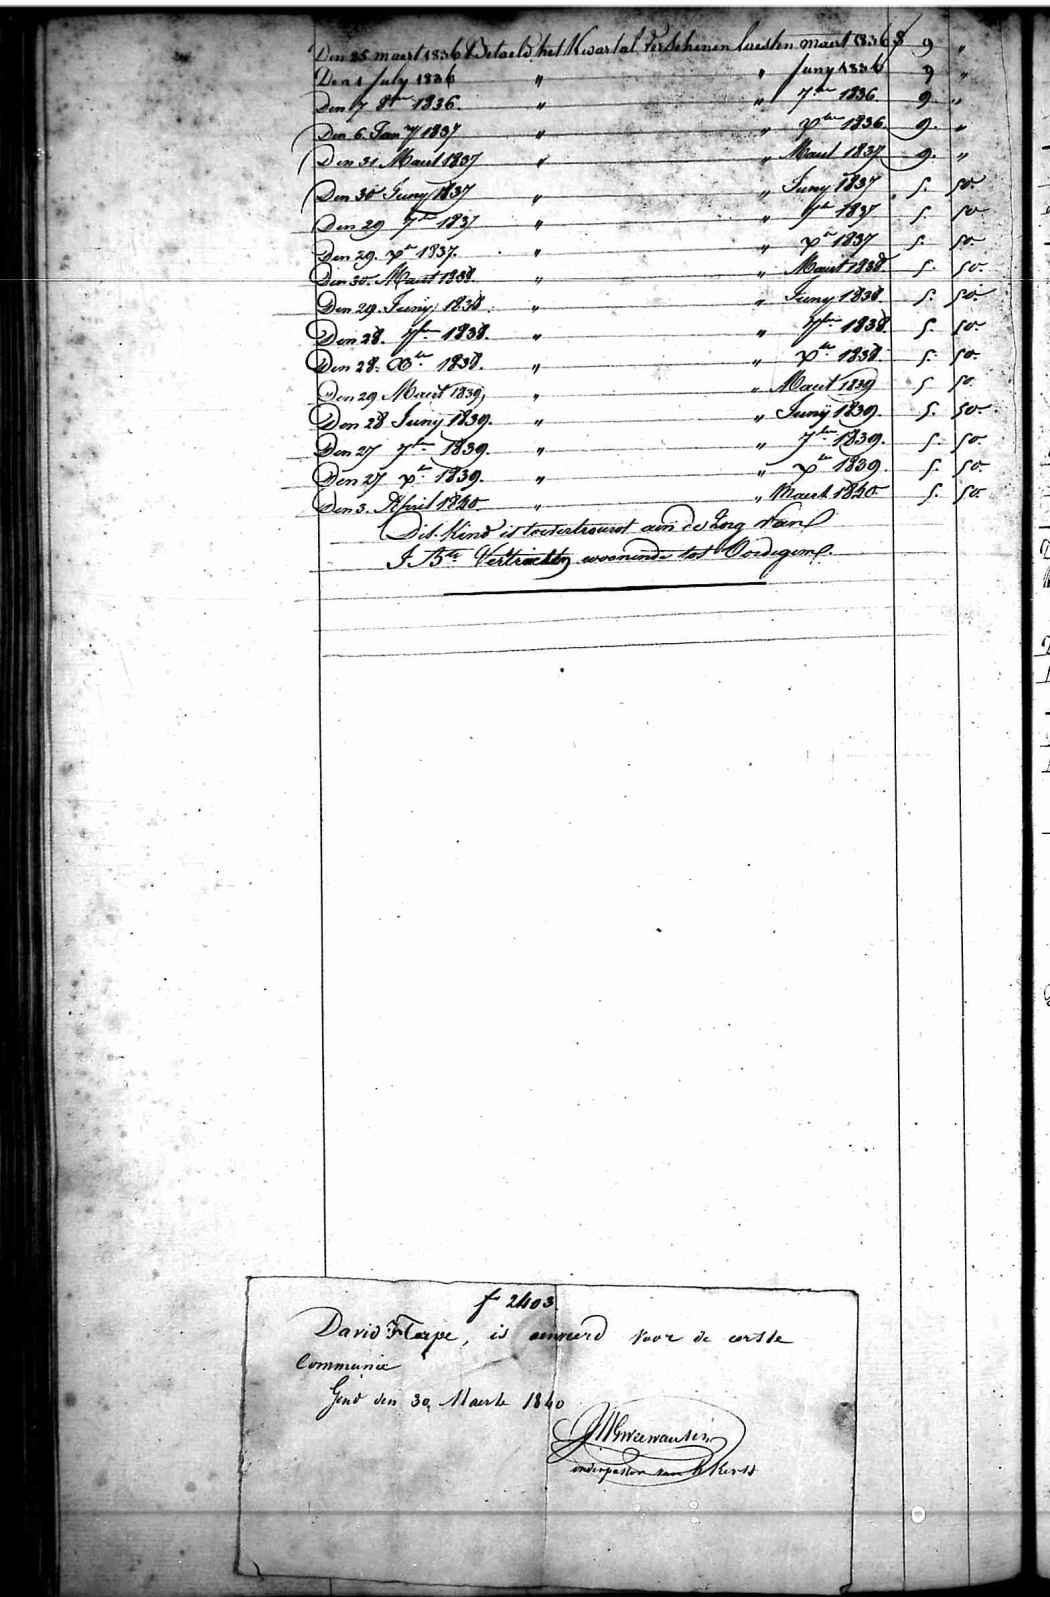 Den 25 maert 1836 Betaeld het Kwartal verschenen leesten maert 1836 f 9 "
Den 1 July 1836 " " Juny 1836 9 "
Den 7 8re 1836. " " 7re 1836 9 "
Den 6 Jany 1837 " " xbre 1836. 9. "
Den 31 Maert 1837 " " Maert 1837 9. "
Den 30 Juny 1837 " " Juny 1837 5. 50.
Den 29 7re 1837 " " 7re 1837 5. 50
Den 29. xr 1837. " " xr 1837 5. 50.
Den 30. Maert 1838. " " Maert 1838. 5. 50.
Den 29. Juny 1838. " " Juny 1838. 5. 50.
Den 28. 7bre 1838. " " 7bre 1838. 5. 50
Den 28. Xbre 1838. " " xbre 1838. 5. 50.
Den 29 Maert 1839, " " Maert 1839 5 50.
Den 28 Juny 1839. " " Juny 1839. 5. 50.
Den 27 7bre 1839. " " 7bre 1839. 5. 50.
Den 27 xbre 1839. " " xbre 1839. 5. 50.
Den 3. April 1840. " " Maert 1840 5. 50.
Dit Kind is toevertrouwt aen de Zorg van
J Bte woonende tot Oordegem.
f 2403
David F Terpe, is aenveerd voor de eerste
Communie
Gend den 30 Maerte 1840